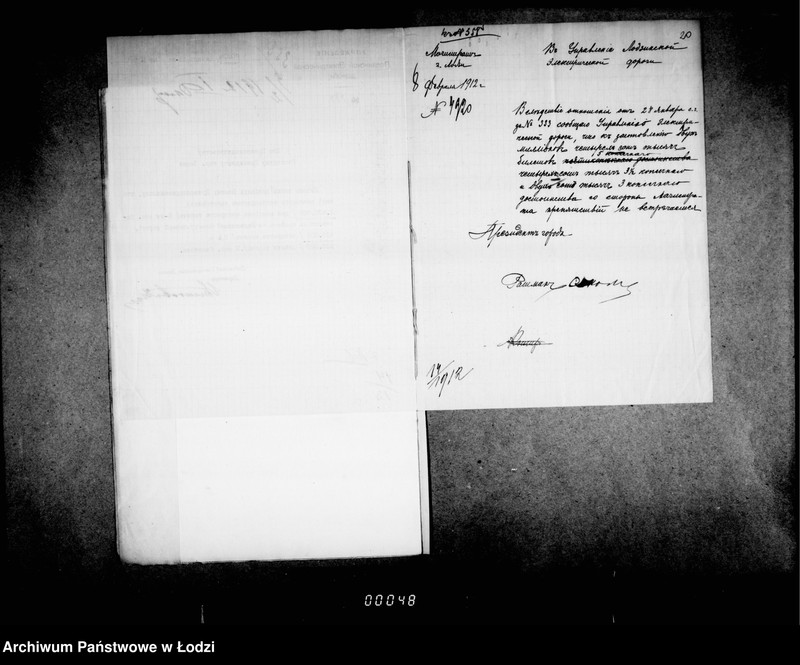 20
Магистратъ
г. Лодзи
8 Февраля 1912 г.
№ 4920
Въ Управленіе Лодзинской
Электрической дороги
Вслѣдствіе отношенія отъ 24 Января с.г.
за № 323 сообщаю Управленію Электри-
ческой дороги, что къ заготовленію двухъ
милліоновъ четырехсотъ тысячъ
5 копечнаго
билетовъ пятикопѣечнаго достоинства
четырехсотъ тысячъ 3½ копечнаго
и двухсотъ тысячъ 3 копечнаго
достоинства со стороны Магистра-
та препятствій не встрѣчается
Президентъ города
14/II 1912
00048
Archiwum Państwowe w Łodzi